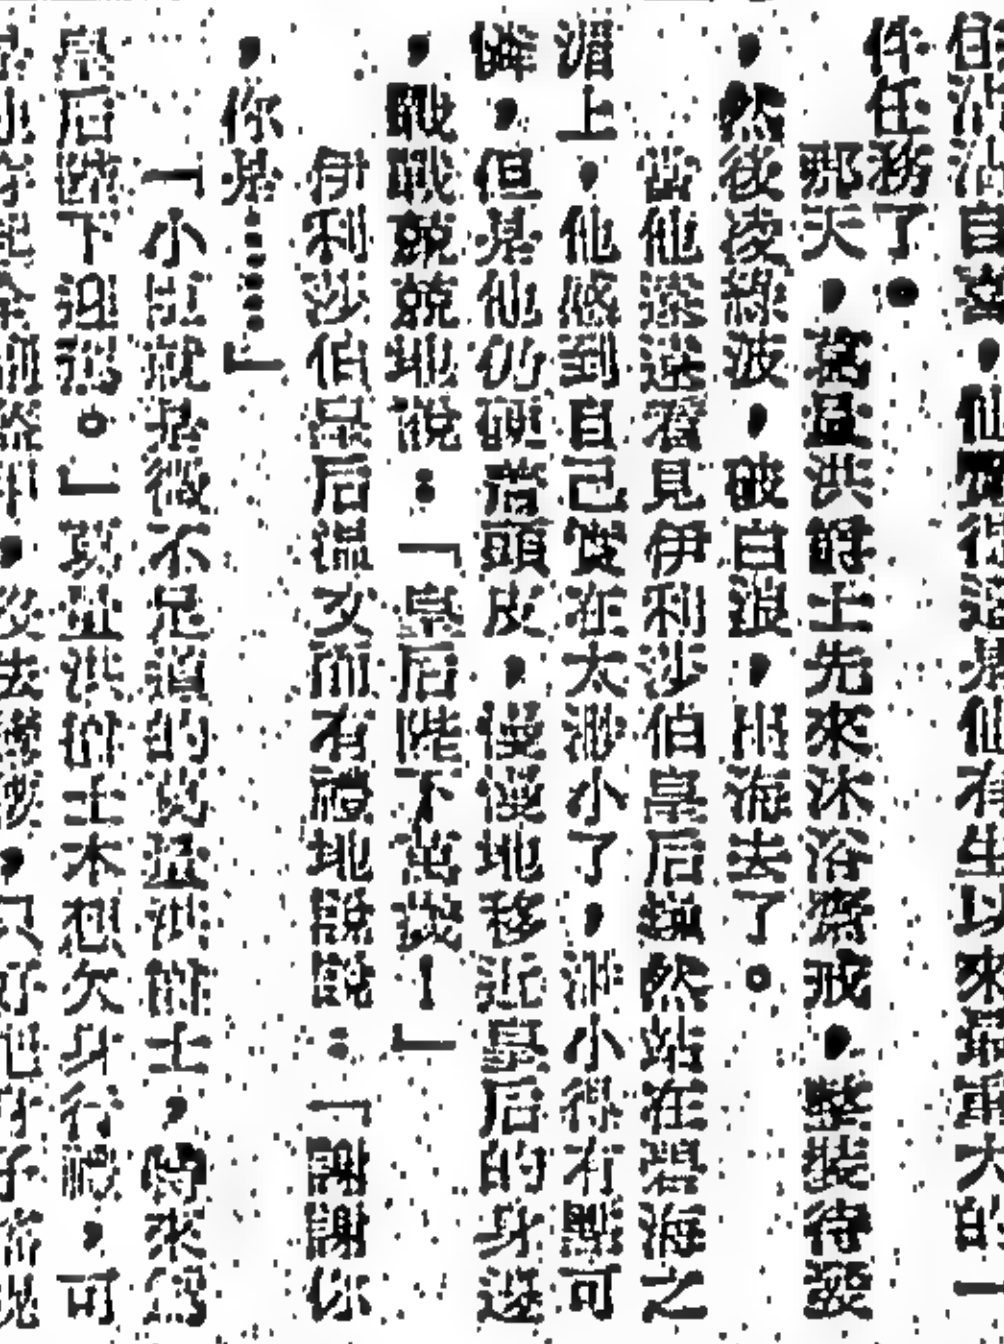 自沾沾自喜，他覺得這是他有生以來最重大的一
件任務了。
那天，莫孟洪爵士先來沐浴齋戒，整裝待發
，然後凌綠波，破白浪，出海去了。
當他遠遠看見伊利沙伯皇后巍然站在碧海之
湄上，他感到自己實在太渺小了，渺小得有點可
憐，但是他仍硬着頭皮，慢慢地移近皇后的身邊
，戰戰兢兢地說：「皇后陛下萬歲！」
伊利沙伯皇后溫文而有禮地說：「謝謝你
，你是……」
「小臣就是微不足道的莫孟洪爵士，特來為
皇后陛下迎迓。」莫孟洪爵士本想欠身行禮，可